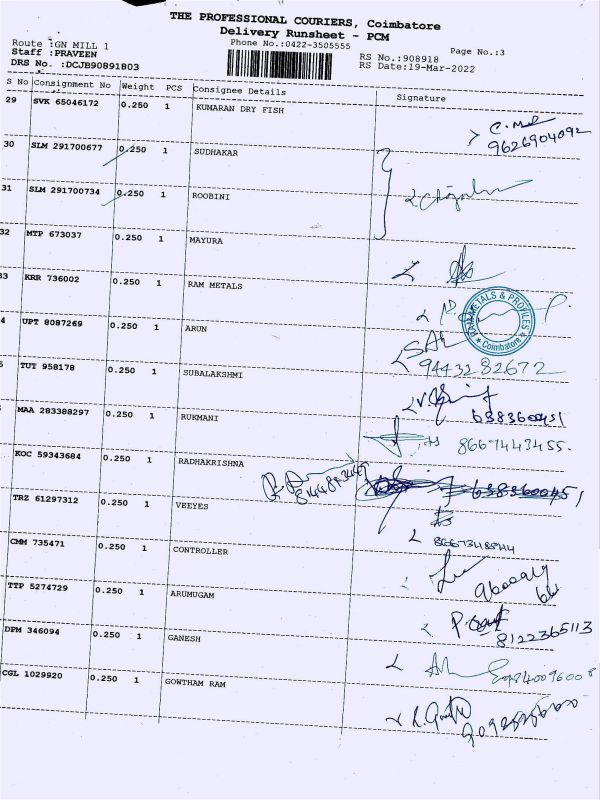 THE PROFESSIONAL COURIERS, Coimbatore
Delivery Runsheet - PCM
Route :GN MILL 1 Phone No.:0422-3505555 Page No.:3
Staff :PRAVEEN RS No.:908918
DRS No. :DCJB90891803 RS Date:19-Mar-2022
S No Consignment No Weight PCS Consignee Details Signature
29 SVK 65046172 0.250 1 KUMARAN DRY FISH
9626904092
30 SLM 291700677 0.250 1 SUDHAKAR
31 SLM 291700734 0.250 1 ROOBINI
32 MTP 673037 0.250 1 MAYURA
33 KRR 736002 0.250 1 RAM METALS
RAM METALS & PROFILES
Coimbatore
4 UPT 8087269 0.250 1 ARUN
9443282672
TUT 958178 0.250 1 SUBALAKSHMI
6383600451
MAA 283388297 0.250 1 RUKMANI
8667443455.
KOC 59343684 0.250 1 RADHAKRISHNA
6383600451
TRZ 61297312 0.250 1 VEEYES
CMM 735471 0.250 1 CONTROLLER
TTP 5274729 0.250 1 ARUMUGAM
8122365113
DPM 346094 0.250 1 GANESH
CGL 1029920 0.250 1 GOWTHAM RAM